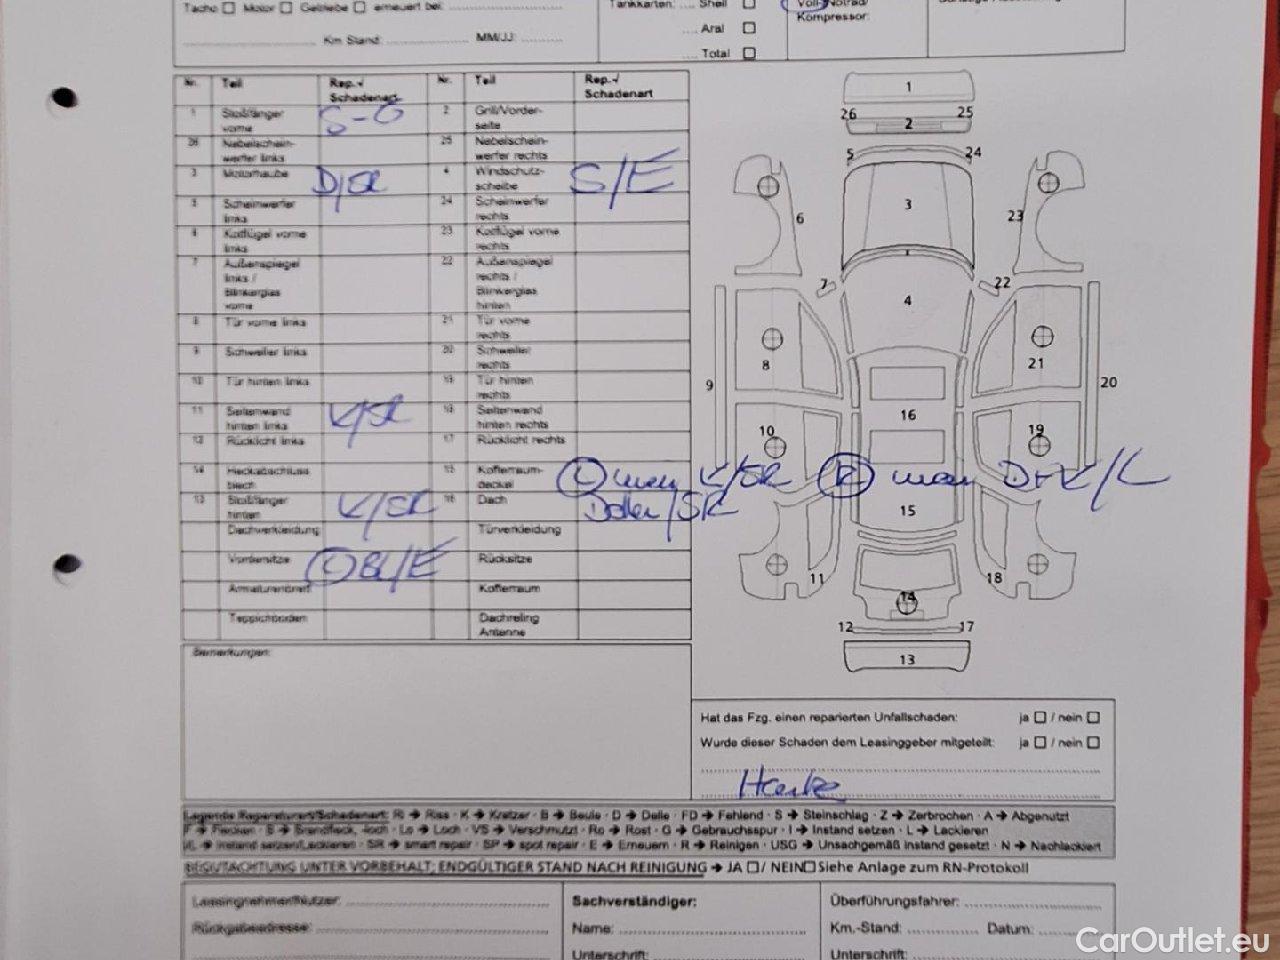 Tacho ☐ Motor ☐ Getriebe ☐ erneuert bei:
Tankkarten: .... Shell ☐
Voll-/Notrad/
Kompressor:
Km Stand: MM/JJ:
.... Aral ☐
.... Total ☐
Nr. Teil Rep.-/ Schadenart Nr. Teil Rep.-/ Schadenart
1 Stoßfänger vorne S-G 2 Grill/Vorder-seite
26 Nebelschein-werfer links 25 Nebelschein-werfer rechts
3 Motorhaube D/SR 4 Windschutz-scheibe S/E
5 Scheinwerfer links 24 Scheinwerfer rechts
6 Kotflügel vorne links 23 Kotflügel vorne rechts
7 Außenspiegel links / Blinkerglas vorne 22 Außenspiegel rechts / Blinkerglas hinten
8 Tür vorne links 21 Tür vorne rechts
9 Schweller links 20 Schweller rechts
10 Tür hinten links 19 Tür hinten rechts
11 Seitenwand hinten links K/SR 18 Seitenwand hinten rechts
12 Rücklicht links 17 Rücklicht rechts
14 Heckabschluss blech 15 Kofferraum-deckel
13 Stoßfänger hinten K/SR 16 Dach
Dachverkleidung Türverkleidung
Vordersitze Rücksitze
Armaturenbrett Kofferraum
Teppichboden Dachreling Antenne
K/SR
D+K/L
1
26 2 25
5 24
3
6 23
7 22
4
8 21
9 20
16
10 19
15
11 18
14
12 17
13
Bemerkungen:
Hat das Fzg. einen reparierten Unfallschaden: ja ☐ / nein ☐
Wurde dieser Schaden dem Leasinggeber mitgeteilt: ja ☐ / nein ☐
Legende Reparaturart/Schadenart: Ri ➔ Riss · K ➔ Kratzer · B ➔ Beule · D ➔ Delle · FD ➔ Fehlend · S ➔ Steinschlag · Z ➔ Zerbrochen · A ➔ Abgenutzt
F ➔ Flecken · B ➔ Brandfleck, -loch · Lo ➔ Loch · VS ➔ Verschmutzt · Ro ➔ Rost · G ➔ Gebrauchsspur · I ➔ Instand setzen · L ➔ Lackieren
I/L ➔ Instand setzen/Lackieren · SR ➔ smart repair · SP ➔ spot repair · E ➔ Erneuern · R ➔ Reinigen · USG ➔ Unsachgemäß instand gesetzt · N ➔ Nachlackiert
BEGUTACHTUNG UNTER VORBEHALT; ENDGÜLTIGER STAND NACH REINIGUNG ➔ JA ☐ / NEIN ☐ Siehe Anlage zum RN-Protokoll
Leasingnehmer/Nutzer: Sachverständiger: Überführungsfahrer:
Rückgabeadresse: Name: Km.-Stand: Datum:
Unterschrift: Unterschrift:
CarOutlet.eu